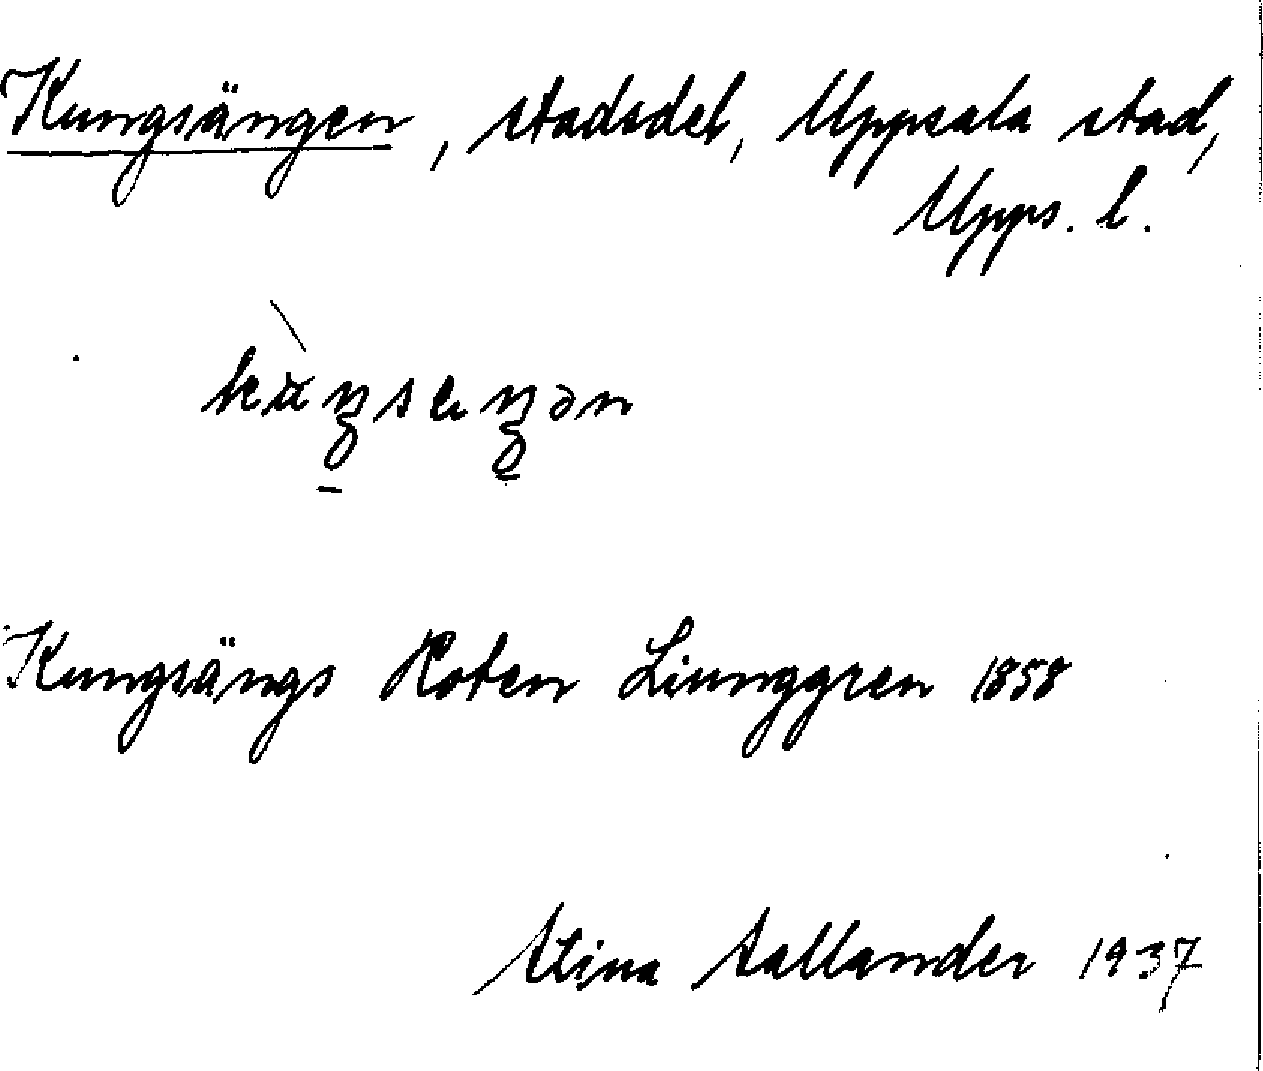 Kungsängen, stadsdel, Uppsala stad,
Upps. l.
Kungsängs Roten Liunggren 1858
Stina Sallander 1937